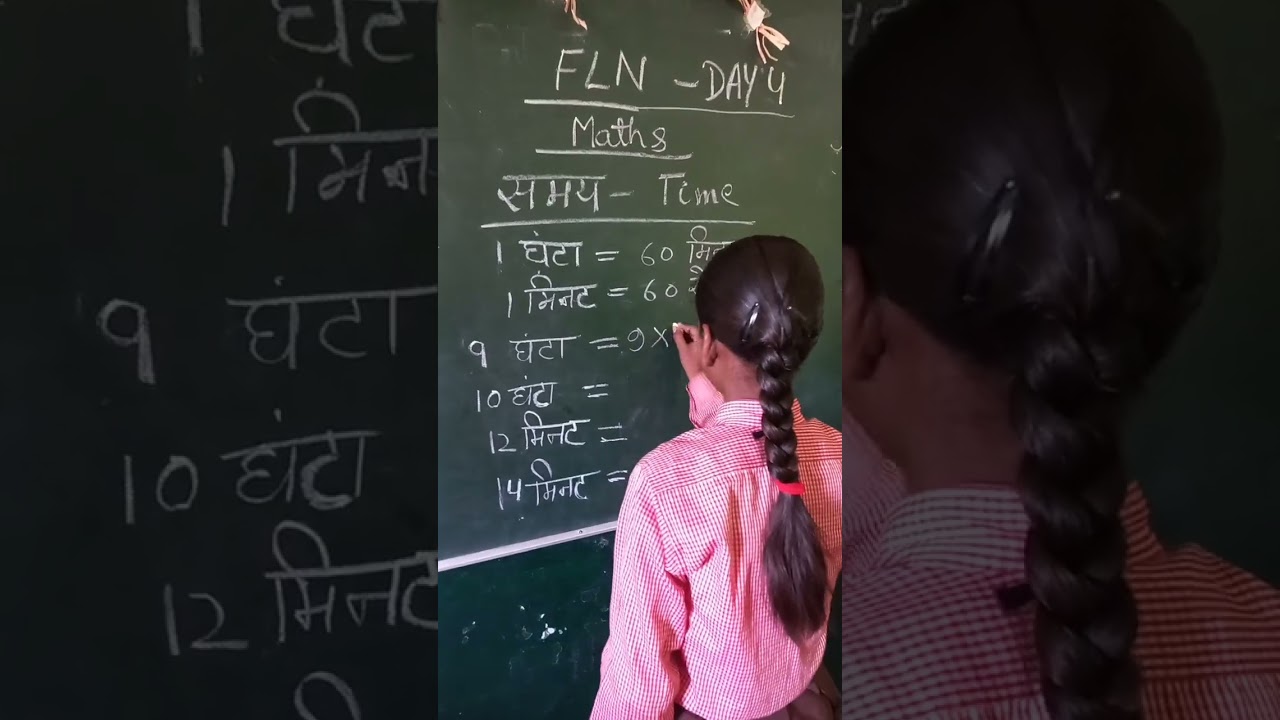 FLN - DAY 4
Maths
समय - Time
1 घंटा = 60
1 मिनट = 60
9 घंटा = 9 ×
10 घंटा =
12 मिनट =
14 मिनट =